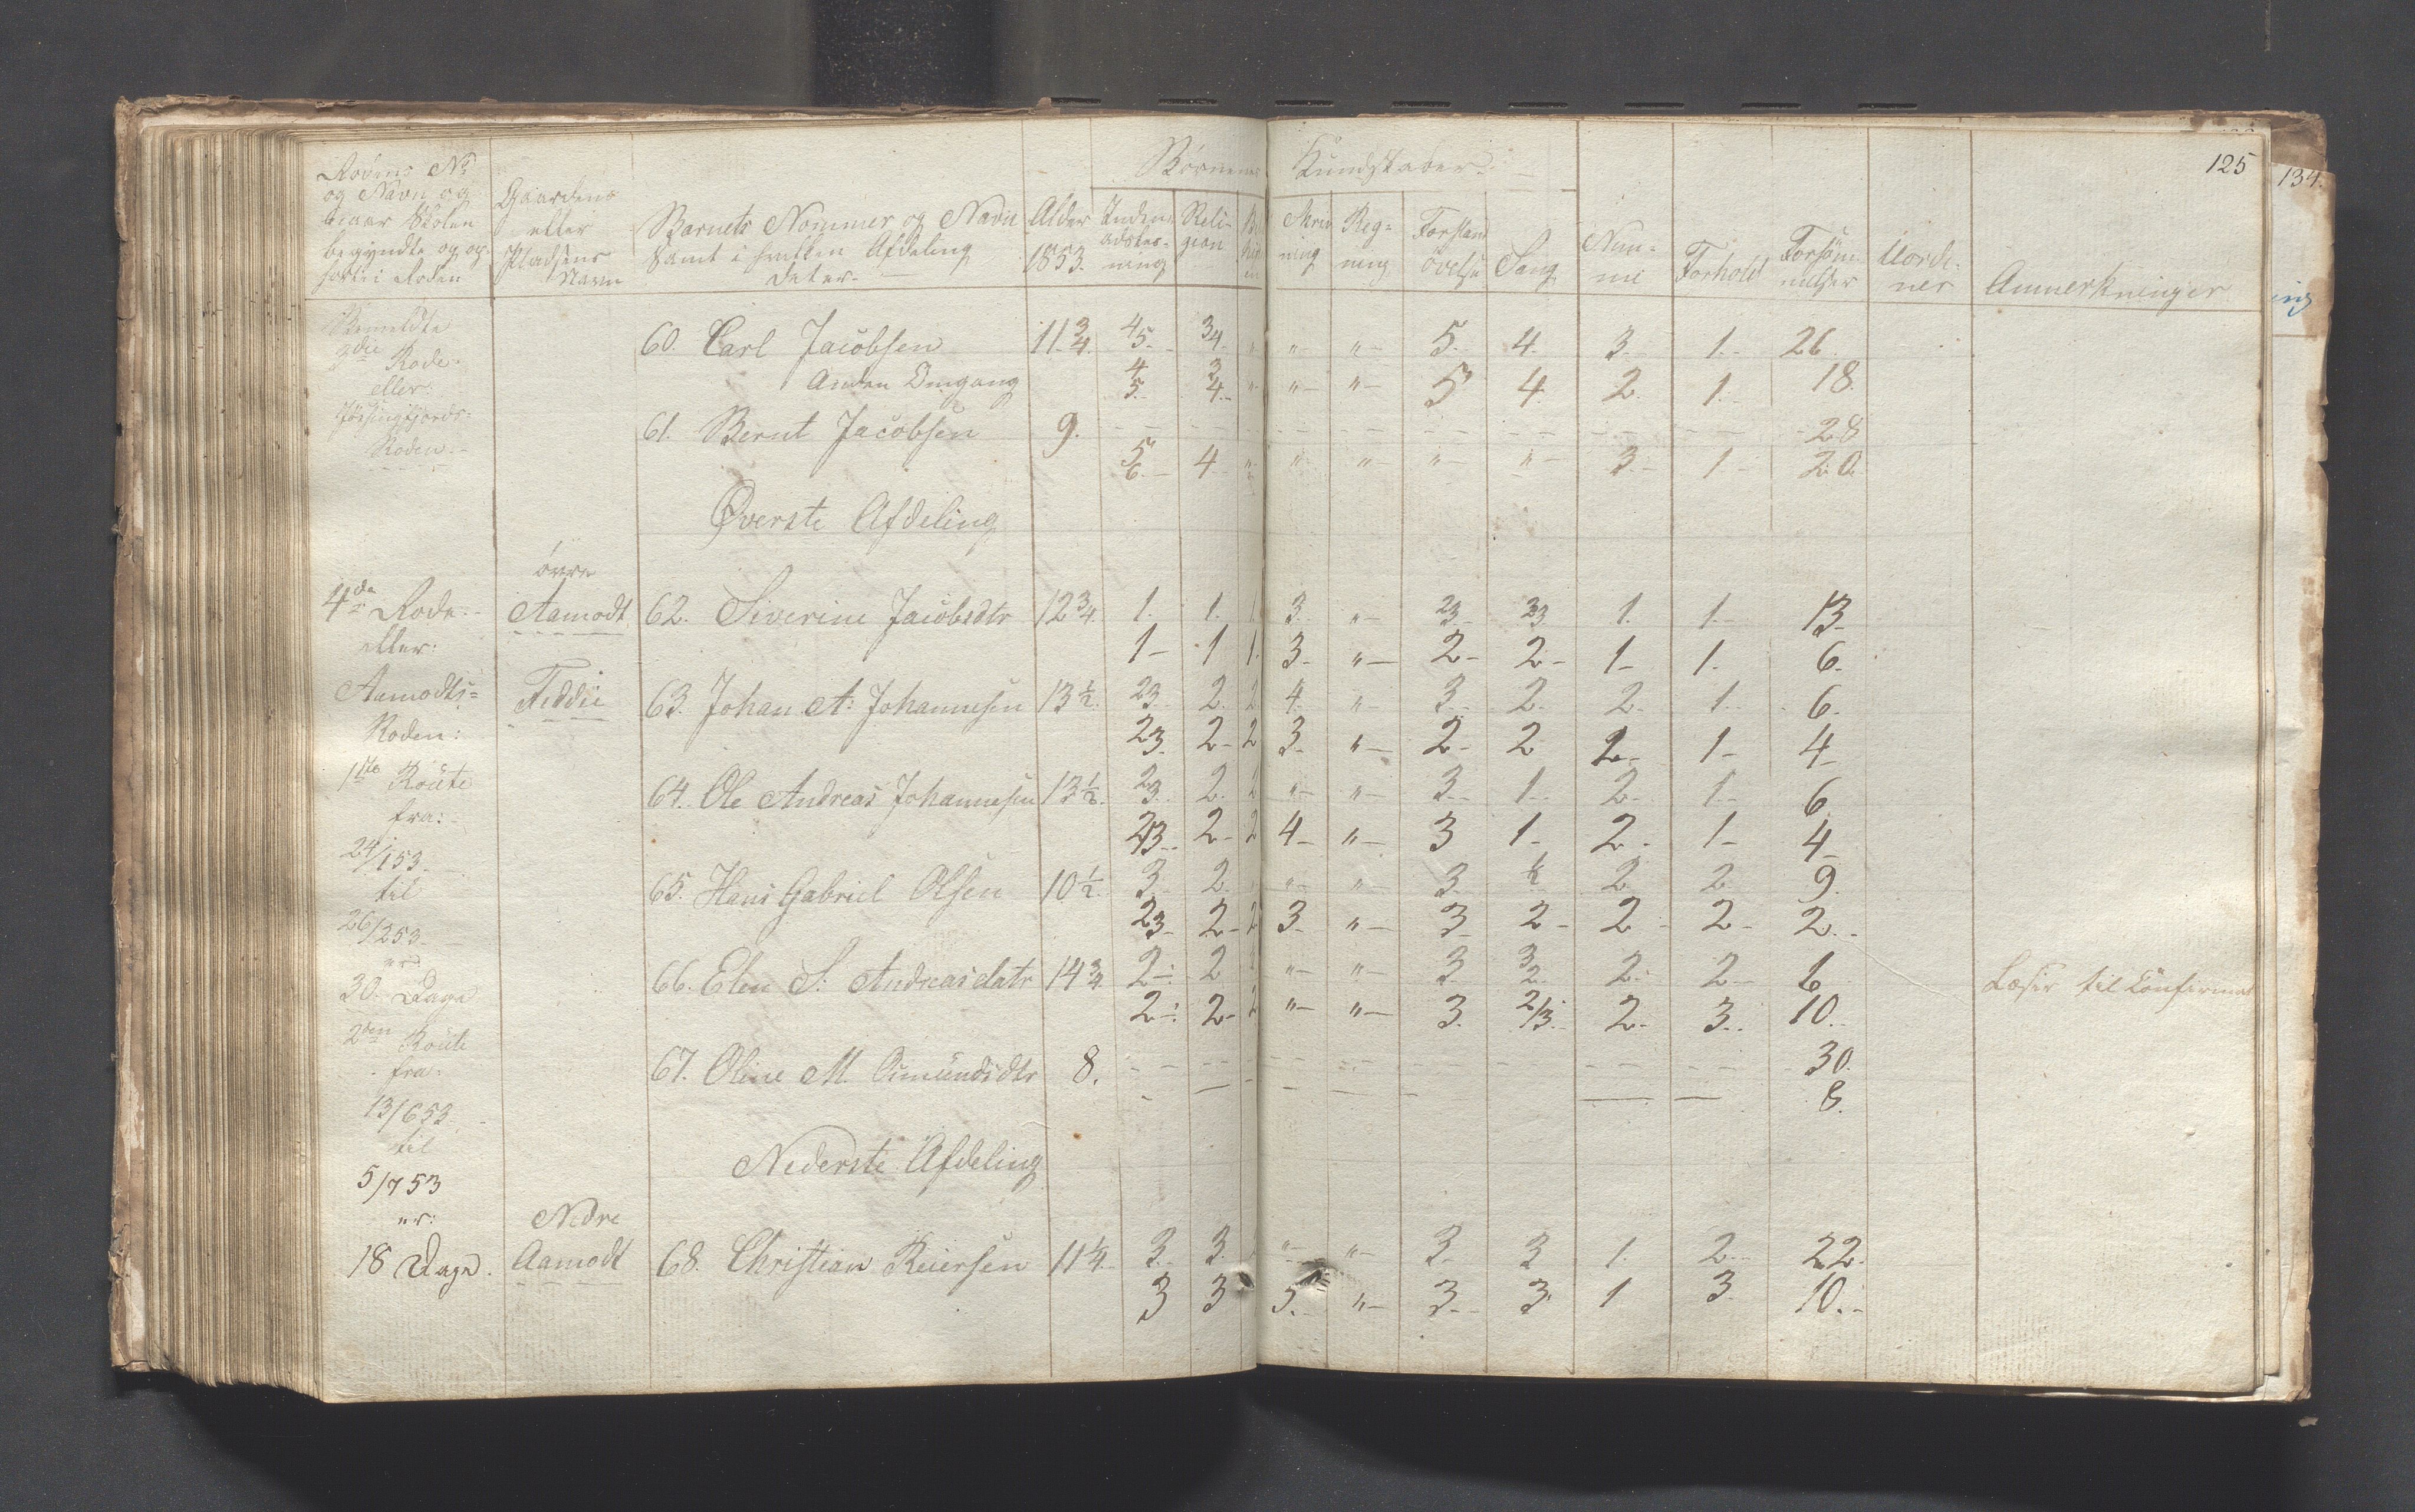 125
134.
Rodens No
og Navn og
hvaar Skolen
begyndte og op-
hørte i Roden
Gaardens
eller
Pladsens
Navn
Barnets Nommer og Navn
samt i hvilken Afdeling
det er.
Alder
1853.
Børnenes Kundskaber.
Inden-
adslæs-
ning
Reli-
gion
Skriv-
ning
Reg-
ning
Forstand
øvelse
Sang
Nem-
me
Forhold
Forsøm-
melser
Uorde-
ner
Anmerkninger
Bemeldte
3die Rode.
eller:
Jøssingfjords-
Roden.
60. Carl Jacobsen 11 3/4. 4/5. 3/4. " " " 5. 4. 3. 1. 26.
Anden Omgang 4/5. 3/4. " " " 5 4. 2. 1. 18.
61. Bernt Jacobsen 9. - - - - - - - - - 28
5/6. 4 " " " " " 3 1 20.
Øverste Afdeling
4de Rode.
eller:
Aamodts-
Roden:
øvre
Aamodt
62. Siverine Jacobsdtr 12 3/4. 1. 1. 1 3. " 23. 23. 1. 1. 13.
1 1 1. 3. " 2 2 1 1. 6.
Fiddie
63. Johan A: Johannesen 13 1/2. 23. 2. 2 4. " 3. 2. 2. 1. 6.
23. 2 2 3. " 2 2 2 1 4
1ste Route
fra:
24/1 53.
til
26/2 53.
er
30. Dage
64. Ole Andreas Johannesen 13 1/2. 23. 2. 2 " " 3. 1. 2. 1. 6
2/3. 2 2 4 " 3 1 2. 1 4
65. Hans Gabriel Olsen 10 1/2. 3. 2. " " 3. 2 2 9.
23. 2 2 3. " 3 2 2 2 2.
66. Elen S: Andreasdatr 14 3/4. 2. 2 " " 3 3/2. 2. 2 6
Læser til Confirmat
2. 2 2 " " 3. 2/3. 2. 3. 10.
2den Route
fra.
13/6 53.
til
5/7 53
er:
18 Dage.
67. Oline M. Omundsdtr 8. - - - - - - - - - 30.
- - - - - - - 8.
Nederste Afdeling
Nedre
Aamodt
68. Christian Reiersen 11 1/4. 3. 3. " " 3. 3 1. 2. 22.
3 3 5. " 3. 3 1 3. 10.